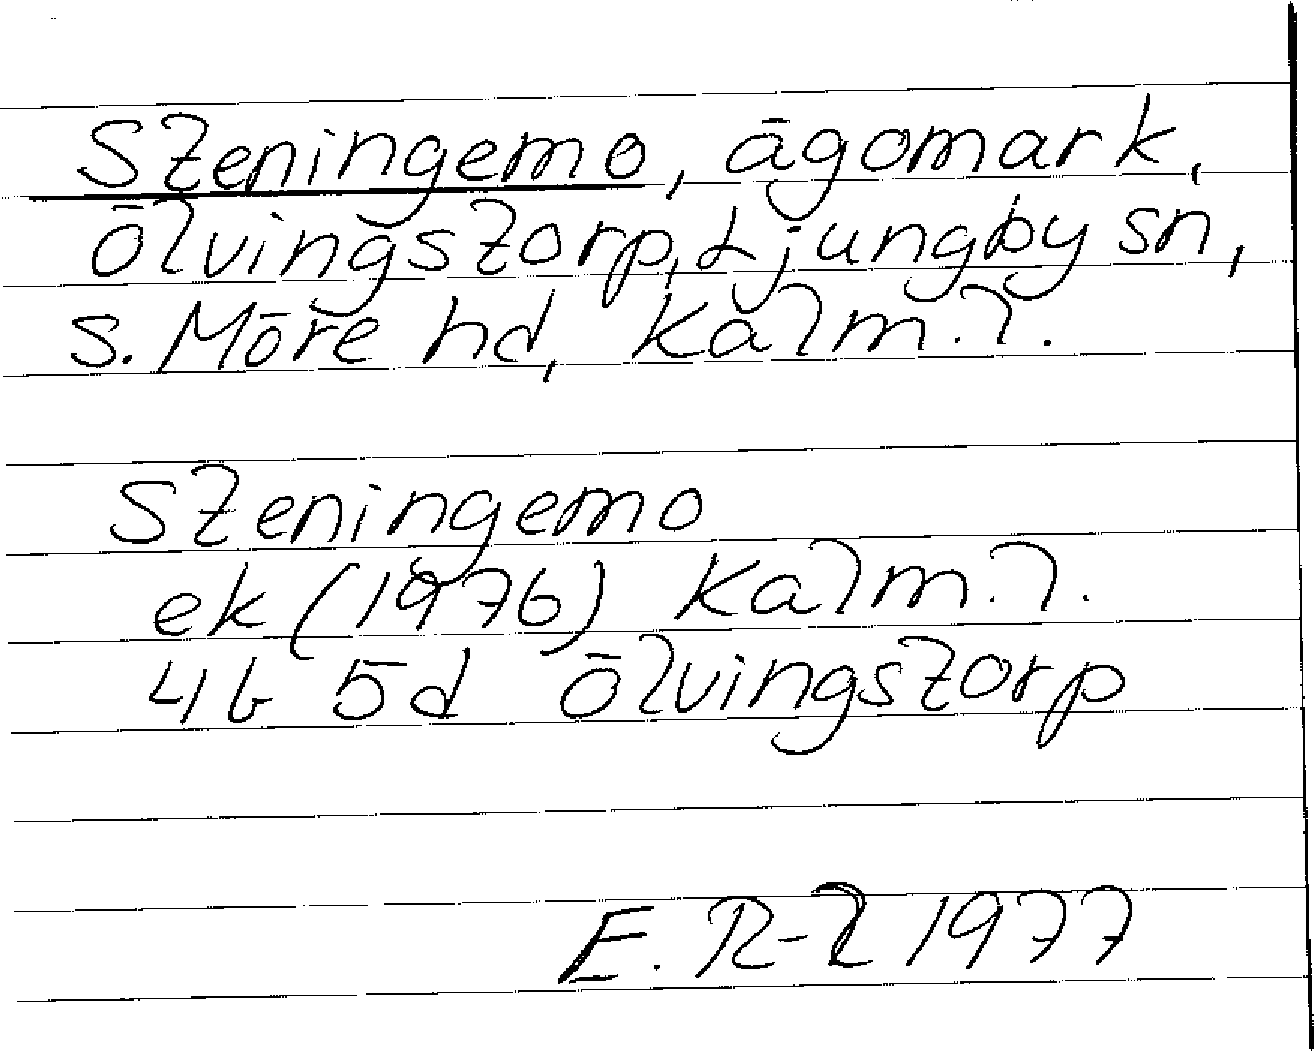 Steningemo, ägomark,
ölvingstorp, Ljungby sn,
S. Möre hd, Kalm.l.
Steningemo
ek (1976) Kalm.l.
4G 5d ölvingstorp
E. R-l 1977